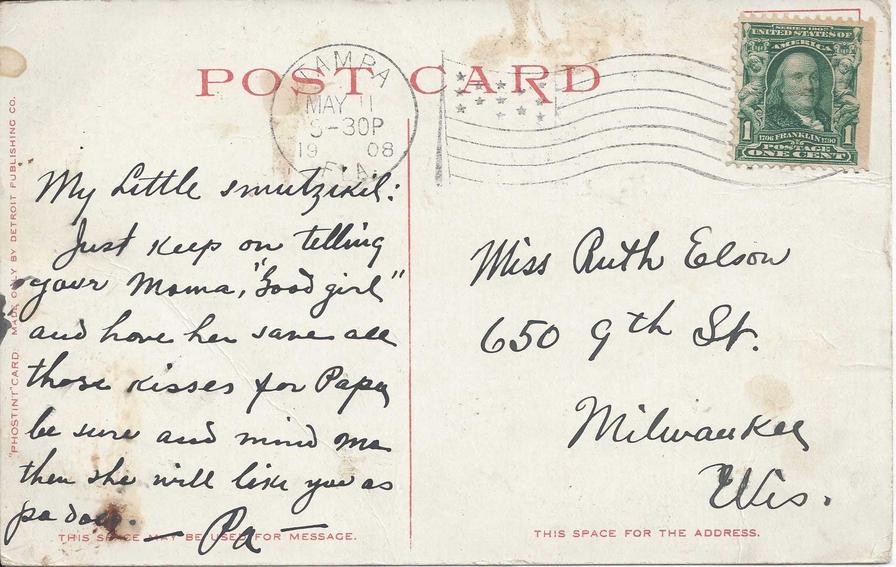 POST CARD
TAMPA
MAY 11
-30P
1908
FLA.
SERIES 1902
UNITED STATES OF
AMERICA
1 1706 FRANKLIN 1790 1
POSTAGE
ONE CENT
"PHOSTINT" CARD: MADE ONLY BY DETROIT PUBLISHING CO.
My Little smutzikil:
Just keep on telling
your Mama, "Good girl"
and have her save all
those kisses for Papa
be sure and mind ma
then she will like you as
pa does.
— Pa —
THIS SPACE MAY BE USED FOR MESSAGE.
Miss Ruth Elson
650 9th St.
Milwaukee
Wis.
THIS SPACE FOR THE ADDRESS.